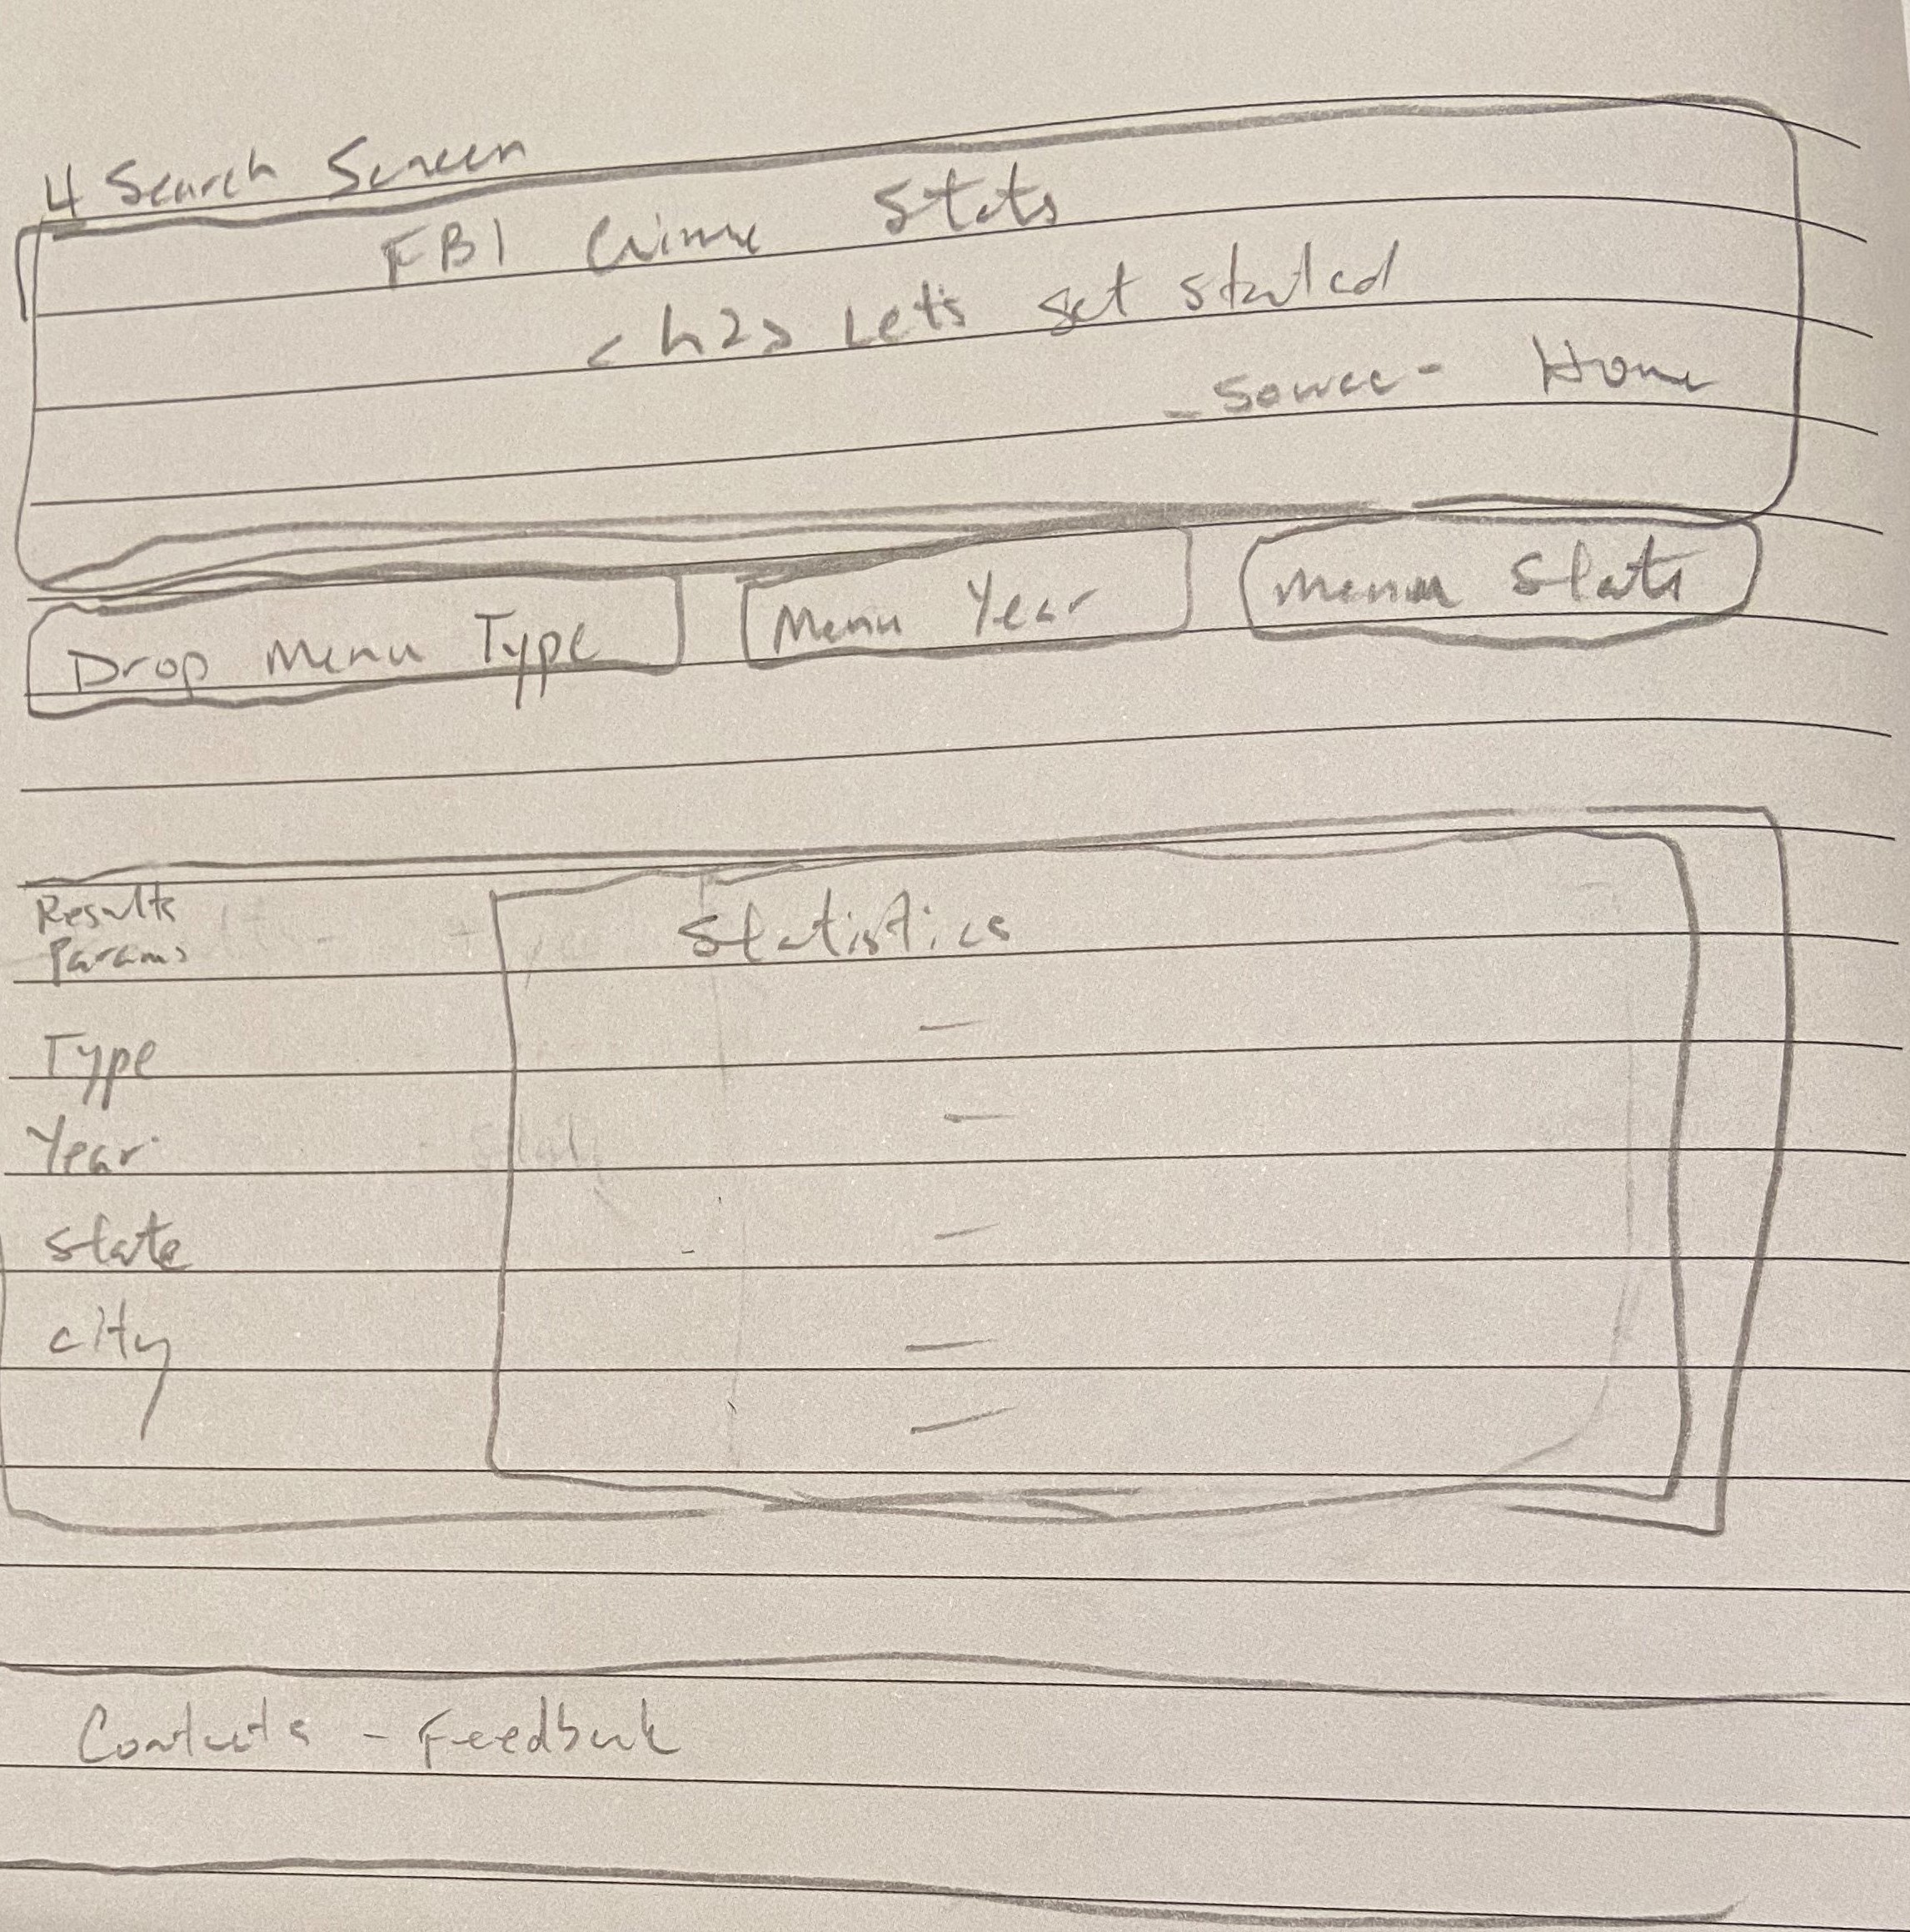 4 Search Screen
FBI Crime Stats
<h2> Let's get started
- Source - Home
Drop Menu Type
Menu Year
Menu State
Results
Params
Statistics
Type
Year
State
City
Contacts - Feedback